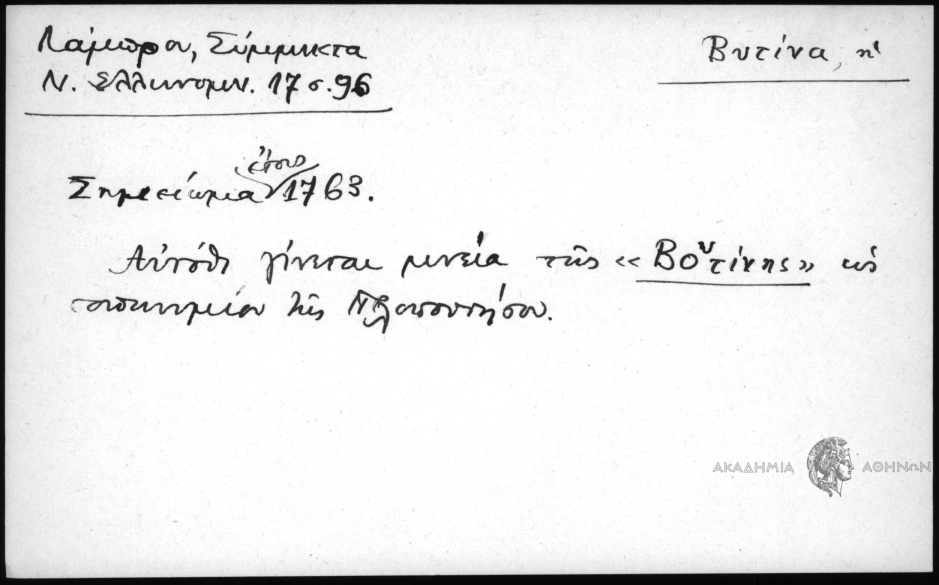 Λάμπρου, Σύμμικτα
Ν. Ελληνομν. 17 σ. 96
Βυτίνα, ἡ
ἔτους
Σημείωμα 1763.
Αὐτόθι γίνεται μνεία τῆς «Βοὐτίνης» ὡς
τοπωνυμίου τῆς Πελοποννήσου.
ΑΚΑΔΗΜΙΑ ΑΘΗΝΩΝ